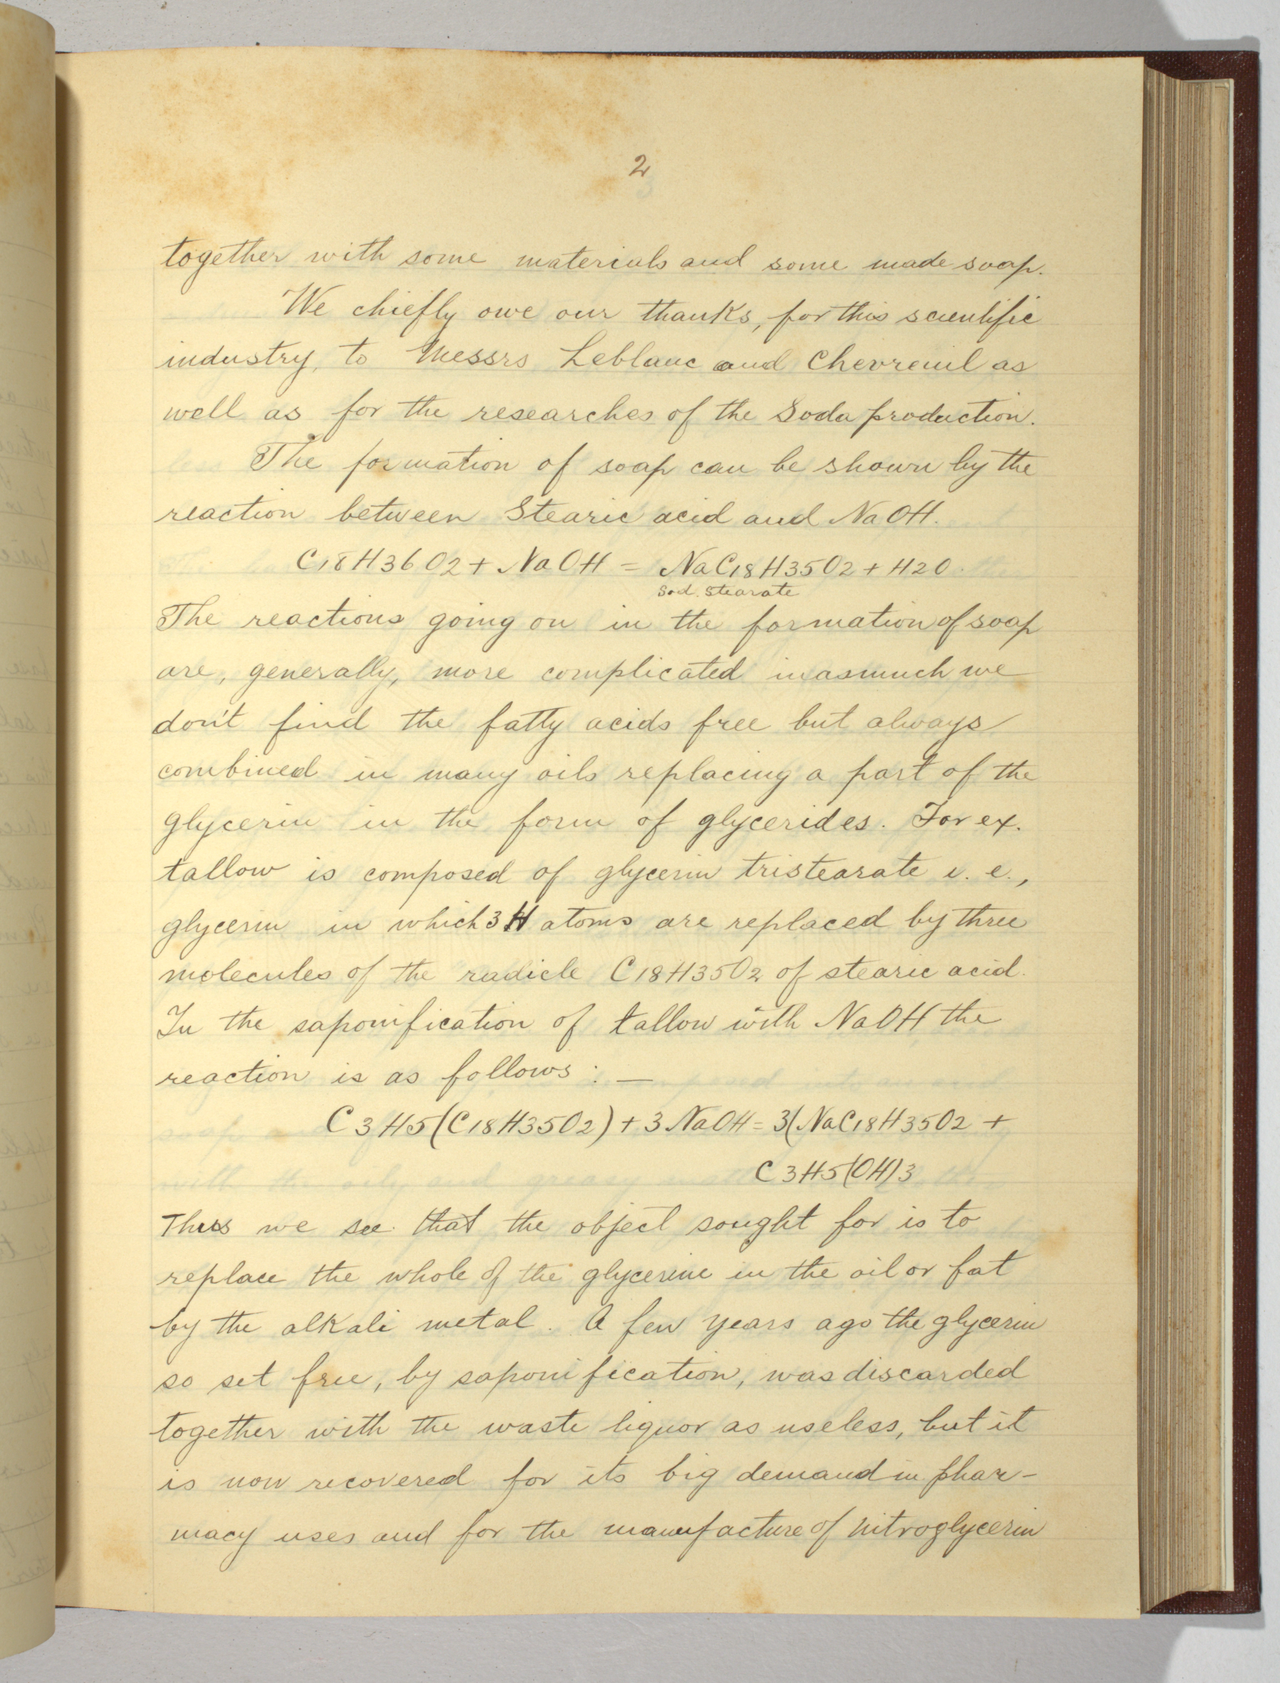 2
together with some materials and some made soap.
We chiefly owe our thanks, for this scientific
industry, to Messrs Leblanc and Chevreuil as
well as for the researches of the Soda production.
The formation of soap can be shown by the
reaction between Stearic acid and NaOH.
C18H36O2 + NaOH = NaC18H35O2 + H2O.
Sod. Stearate
The reactions going on in the formation of soap
are, generally, more complicated inasmuch we
don't find the fatty acids free but always
combined in many oils replacing a part of the
glycerin in the form of glycerides. For ex.
tallow is composed of glycerin tristearate i. e.,
glycerin in which 3 H atoms are replaced by three
molecules of the radicle C18H35O2 of stearic acid.
In the saponification of tallow with NaOH the
reaction is as follows : —
C3H5(C18H35O2) + 3NaOH = 3(NaC18H35O2 +
C3H5(OH)3
Thus we see that the object sought for is to
replace the whole of the glycerine in the oil or fat
by the alkali metal. A few years ago the glycerin
so set free, by saponification, was discarded
together with the waste liquor as useless, but it
is now recovered for its big demand in phar-
macy uses and for the manufacture of nitroglycerin